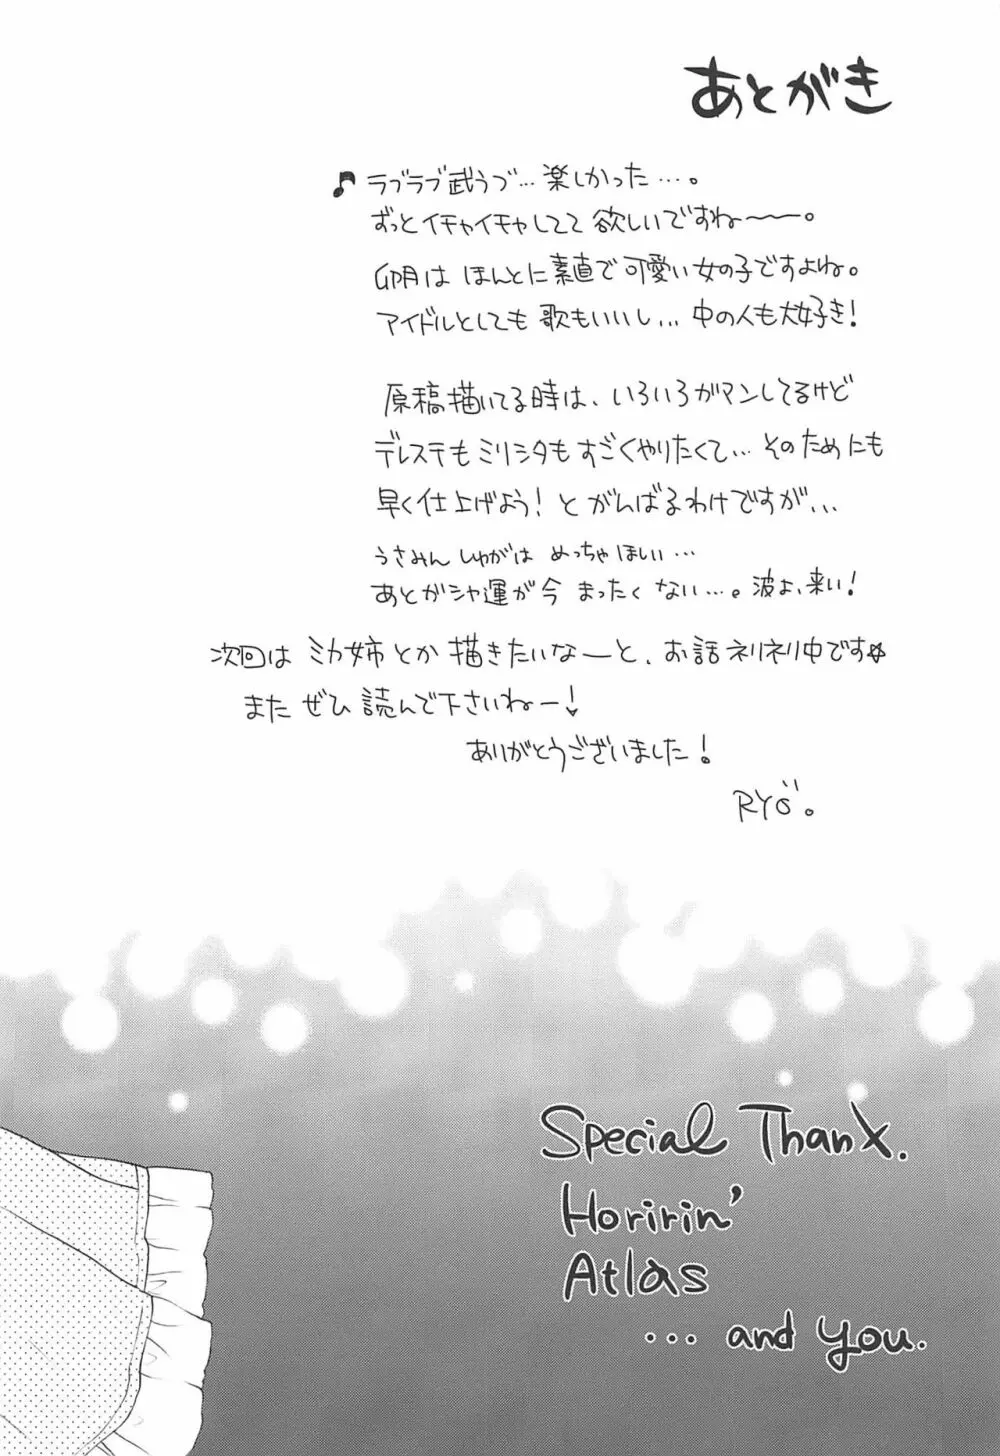 あとがき
♪ラブラブ武うづ…楽しかった…。
ずっとイチャイチャしてて欲しいですね〜〜。
卯月はほんとに素直で可愛い女の子ですよね。
アイドルとしても歌もいいし…中の人も大好き!
原稿描いてる時は、いろいろガマンしてるけど
デレステもミリシタもすごくやりたくて…そのためにも
早く仕上げよう!とがんばるわけですが、、、
うさみんしゅがはめっちゃほしい…
あとガシャ運が今まったくない…。波よ、来い!
次回はミカ姉とか描きたいなーと、お話ネリネリ中です☆
またぜひ読んで下さいねー!
ありがとうございました!
RYÖ。
Special Thanx.
Horirin'
Atlas
... and you.